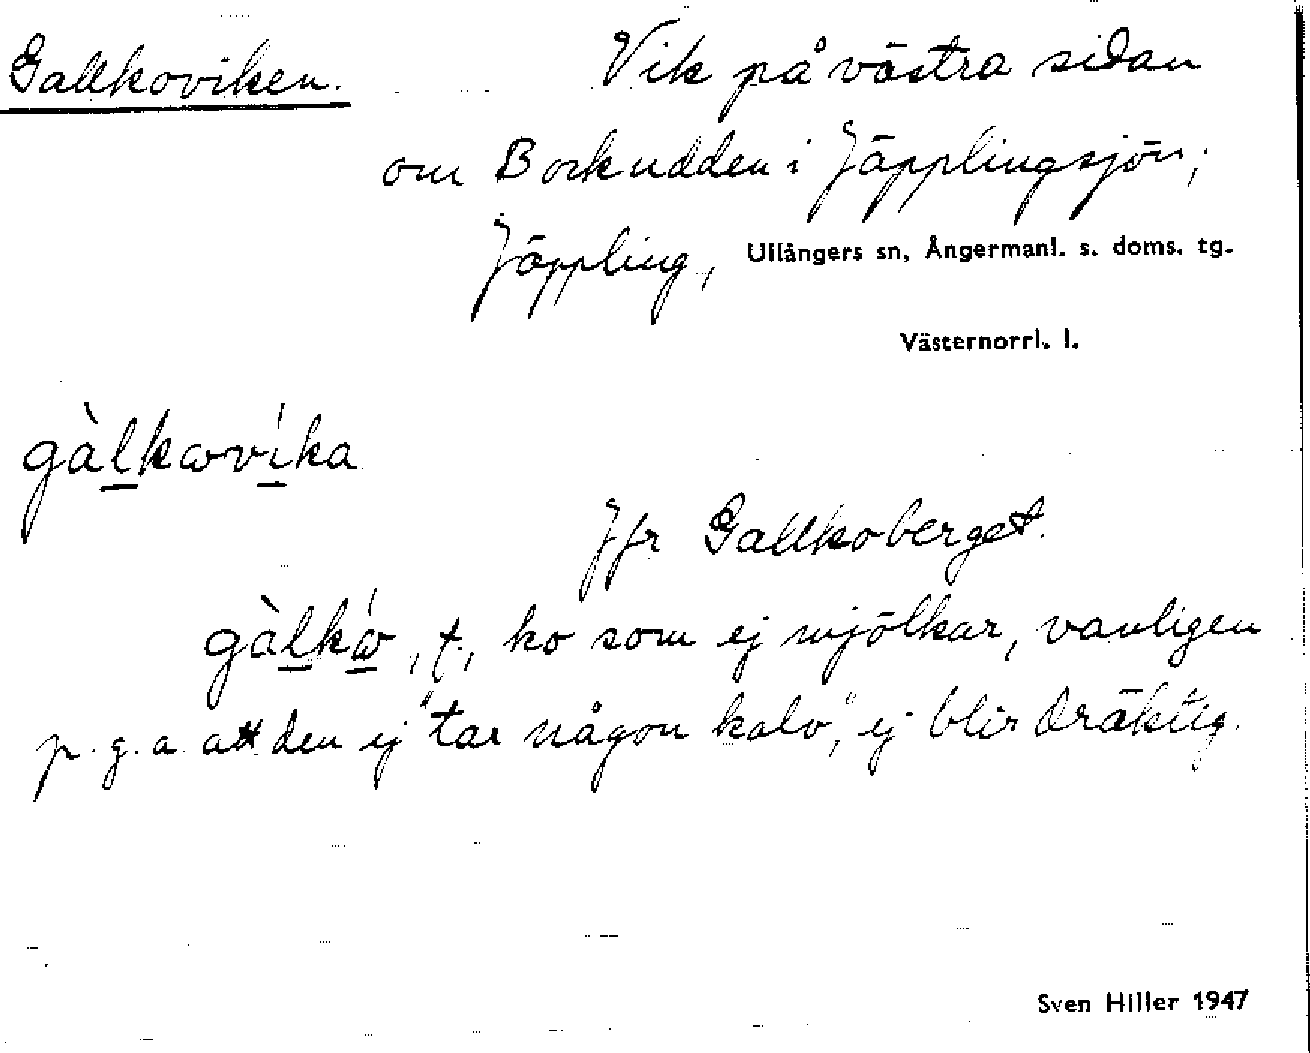 Gallkoviken. Vik på västra sidan
om Borkudden i Jäpplingsjön;
Jäppling, Ullångers sn, Ångermanl. s. doms. tg.
Västernorrl. l.
gàlkωvíka
Jfr Gallkoberget.
gàlkώ, f., ko som ej mjölkar, vanligen
p.g.a. att den ej "tar någon kalv," ej blir dräktig.
Sven Hiller 1947